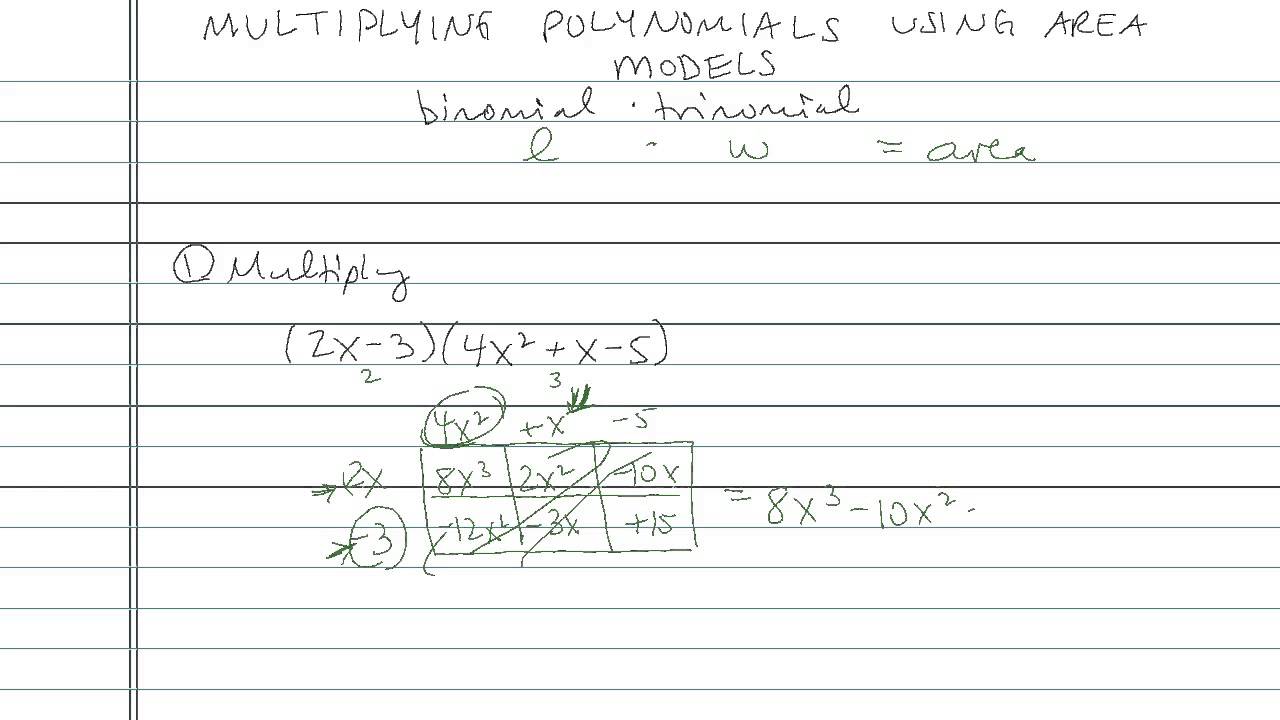 MULTIPLYING POLYNOMIALS USING AREA
MODELS
binomial · trinomial
l · w = area
① Multiply
(2x-3)(4x²+x-5)
2 3
4x² +x -5
2x 8x³ 2x² -10x
-3 -12x² -3x +15
= 8x³-10x²·